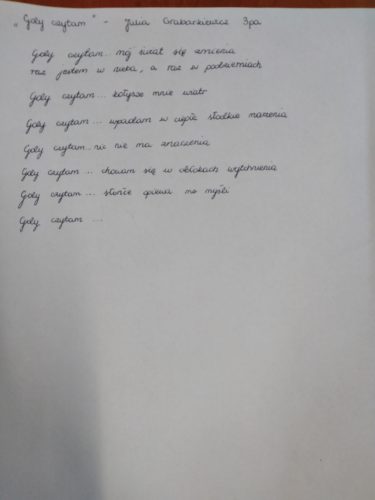 „Gdy czytam" - Julia Grabarkiewicz 3pa
Gdy czytam... mój świat się zmienia
raz jestem w niebie, a raz w podziemiach
Gdy czytam... kołysze mnie wiatr
Gdy czytam... wpadam w ciepłe słodkie marzenia
Gdy czytam... nic nie ma znaczenia
Gdy czytam... chowam się w obłokach wytchnienia
Gdy czytam... słońce śpiewa me myśli
Gdy czytam ...